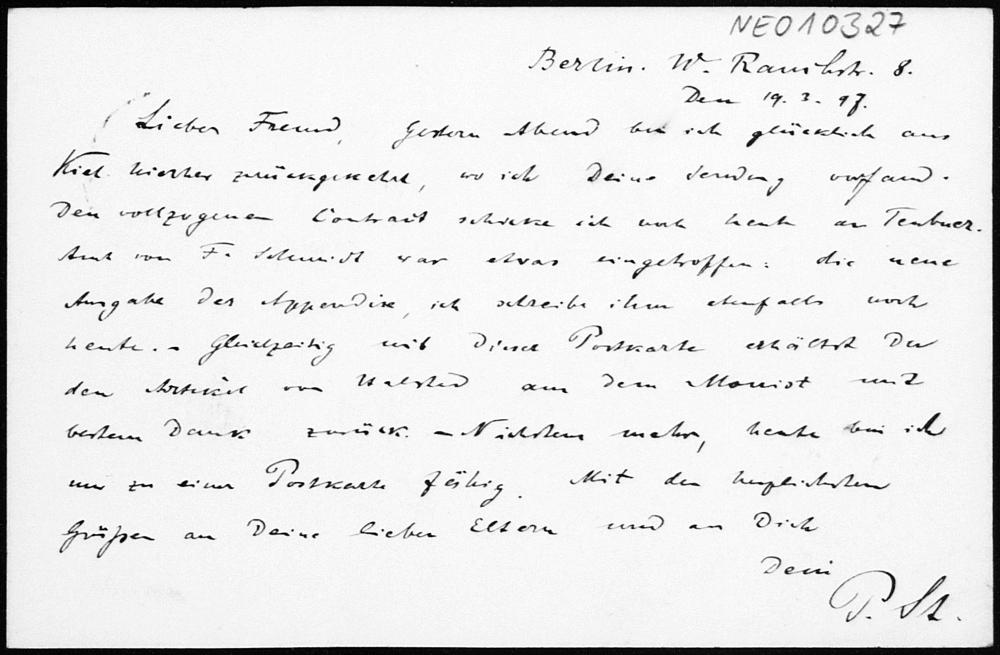 NE010327
Berlin. W. Rauchstr. 8.
Den 19. 3. 97.
Lieber Freund, Gestern Abend bin ich glücklich aus
Kiel hierher zurückgekehrt, wo ich Deine Sendung vorfand.
Den vollzogenen Contract schicke ich noch heute an Teubner.
Auch von F. Schmidt war etwas eingetroffen: die neue
Ausgabe des Appendix, ich schreibe ihm ebenfalls noch
heute. – Gleichzeitig mit dieser Postkarte erhältst Du
den Artikel von Halsted aus dem Monist mit
bestem Dank zurück. – Nächstens mehr, heute bin ich
nur zu einer Postkarte fähig. Mit den herzlichsten
Grüßen an Deine lieben Eltern und an Dich
Dein
P. St.